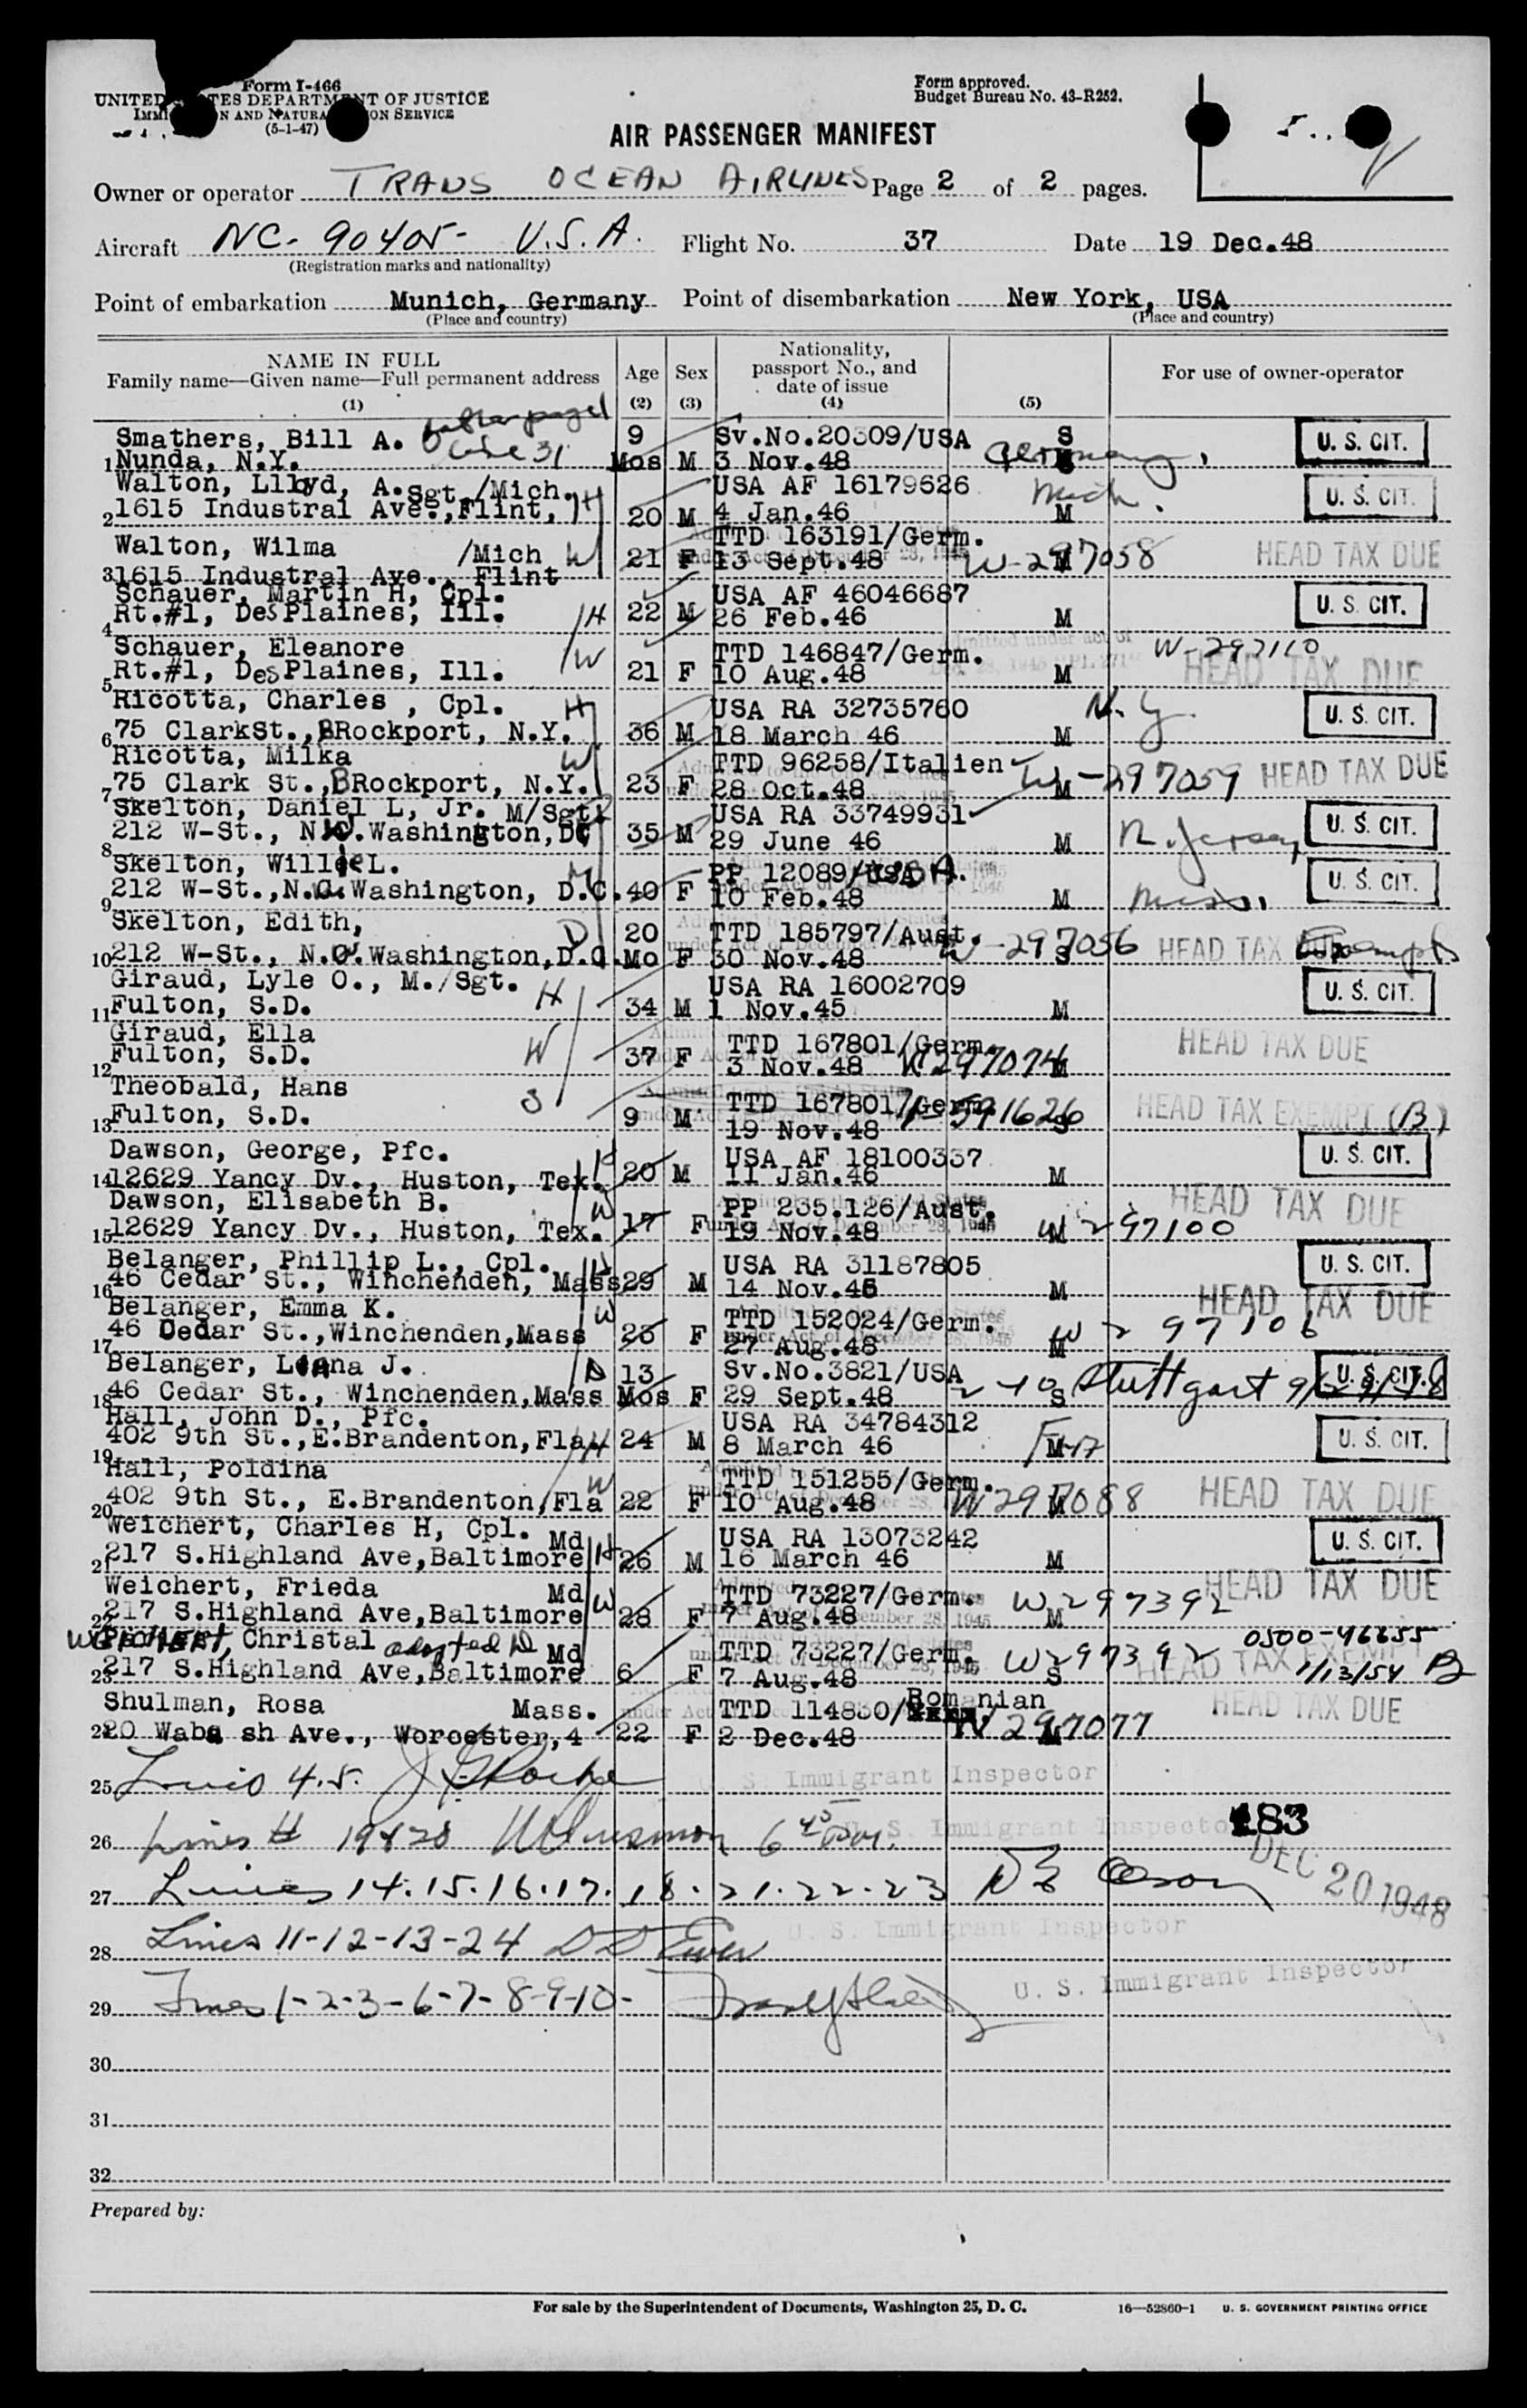 Form I-466
UNITED STATES DEPARTMENT OF JUSTICE
IMMIGRATION AND NATURALIZATION SERVICE
(5-1-47)
Form approved.
Budget Bureau No. 43-R252.
AIR PASSENGER MANIFEST
Owner or operator TRANS OCEAN AIRLINES Page 2 of 2 pages.
Aircraft NC-90405- U.S.A. Flight No. 37 Date 19 Dec.48
(Registration marks and nationality)
Point of embarkation Munich, Germany Point of disembarkation New York, USA
(Place and country) (Place and country)
NAME IN FULL
Family name—Given name—Full permanent address
(1)
Age
(2)
Sex
(3)
Nationality, passport No., and date of issue
(4)
(5)
For use of owner-operator
father page 1
Smathers, Bill A. line 31 9 Sv.No.20309/USA S U. S. CIT.
1 Nunda, N.Y. Mos M 3 Nov.48 Germany
Walton, Lloyd, A. Sgt./Mich. USA AF 16179626 Mich. U. S. CIT.
2 1615 Industral Ave., Flint, H 20 M 4 Jan.46 M
Walton, Wilma /Mich W 21 F TTD 163191/Germ. W-297058 HEAD TAX DUE
3 1615 Industral Ave., Flint 13 Sept.48 M
Schauer, Martin H, Cpl. USA AF 46046687 U. S. CIT.
4 Rt.#1, Des Plaines, Ill. H 22 M 26 Feb.46 M
Schauer, Eleanore W TTD 146847/Germ. W-297110
5 Rt.#1, Des Plaines, Ill. 21 F 10 Aug.48 M HEAD TAX DUE
Ricotta, Charles , Cpl. H USA RA 32735760 N.Y. U. S. CIT.
6 75 ClarkSt., BRockport, N.Y. 36 M 18 March 46 M
Ricotta, Milka W TTD 96258/Italien W-297059 HEAD TAX DUE
7 75 Clark St., BRockport, N.Y. 23 F 28 Oct.48 M
Skelton, Daniel L, Jr. M/Sgt. USA RA 33749931 U. S. CIT.
8 212 W-St., N.W. Washington, DC 35 M 29 June 46 M N. Jersey
Skelton, Willie L. PP 12089/USA U. S. CIT.
9 212 W-St., N.W. Washington, D.C. 40 F 10 Feb.48 M Miss.
Skelton, Edith, D 20 TTD 185797/Aust. W-297056 HEAD TAX Exempt
10 212 W-St., N.W. Washington, D.C. Mo F 30 Nov.48 S
Giraud, Lyle O., M./Sgt. H USA RA 16002709 U. S. CIT.
11 Fulton, S.D. 34 M 1 Nov.45 M
Giraud, Ella W TTD 167801/Germ. HEAD TAX DUE
12 Fulton, S.D. 37 F 3 Nov.48 W297074 M
Theobald, Hans S TTD 167801/Germ. 591626 HEAD TAX EXEMPT (B)
13 Fulton, S.D. 9 M 19 Nov.48 S
Dawson, George, Pfc. H USA AF 18100337 U. S. CIT.
14 12629 Yancy Dv., Huston, Tex. 20 M 11 Jan.46 M
Dawson, Elisabeth B. W PP 235.126/Aust. HEAD TAX DUE
15 12629 Yancy Dv., Huston, Tex. 17 F 19 Nov.48 W 297100
Belanger, Phillip L., Cpl. H USA RA 31187805 U. S. CIT.
16 46 Cedar St., Winchenden, Mass 29 M 14 Nov.45 M
Belanger, Emma K. W TTD 152024/Germ. HEAD TAX DUE
17 46 Cedar St., Winchenden, Mass 25 F 27 Aug.48 W 297106 M
Belanger, Liana J. D 13 Sv.No.3821/USA U. S. CIT.
18 46 Cedar St., Winchenden, Mass Mos F 29 Sept.48 240 S Stuttgart 9/29/48
Hall, John D., Pfc. USA RA 34784312 U. S. CIT.
19 402 9th St., E.Brandenton, Fla. H 24 M 8 March 46 M Fla
Hall, Poldina W TTD 151255/Germ. W297088 HEAD TAX DUE
20 402 9th St., E.Brandenton, Fla 22 F 10 Aug.48 M
Weichert, Charles H, Cpl. Md H USA RA 13073242 U. S. CIT.
21 217 S.Highland Ave, Baltimore 26 M 16 March 46 M
Weichert, Frieda Md W TTD 73227/Germ. W297392 HEAD TAX DUE
22 217 S.Highland Ave, Baltimore 28 F 7 Aug.48 M
WEICHERT, Christal adopted D Md TTD 73227/Germ. W297392 0300-46655
23 217 S.Highland Ave, Baltimore 6 F 7 Aug.48 S HEAD TAX EXEMPT 1/13/54 B
Shulman, Rosa Mass. TTD 114830/Romanian HEAD TAX DUE
24 20 Wabash Ave., Worcester, 4 22 F 2 Dec.48 W297077 M
Admitted to the United States under Act of December 28, 1945
25 Lines 4.5. U. S. Immigrant Inspector
26 Lines # 19 & 20 U. S. Immigrant Inspector 183
27 Lines 14.15.16.17.18.21.22.23 DEC 20 1948
28 Lines 11-12-13-24 U. S. Immigrant Inspector
29 Lines 1-2-3-6-7-8-9-10- U. S. Immigrant Inspector
30
31
32
Prepared by:
For sale by the Superintendent of Documents, Washington 25, D. C. 16—52860-1 U. S. GOVERNMENT PRINTING OFFICE